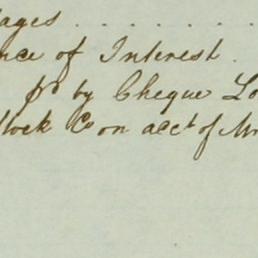 ages . . . . . . . .
nce of Interest .
pd by Cheque Lo
Stock Co on acct of Mr